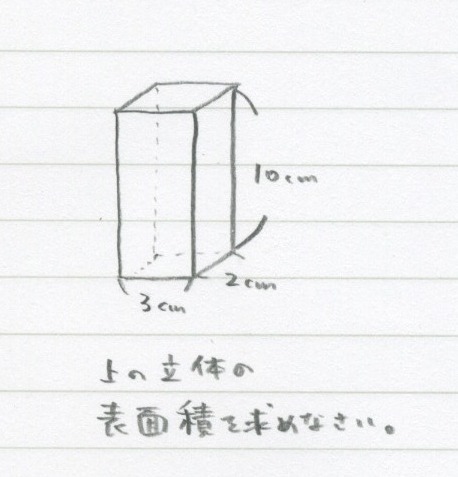 10cm
2cm
3cm
上の立体の
表面積を求めなさい。